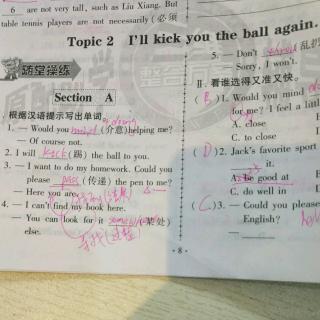 6 are not very tall, such as Liu Xiang. But
table tennis players are not necessarily (必须
Topic 2 I'll kick you the ball again.
随堂操练
Section A
根据汉语提示写出单词。
1. — Would you mind (介意)helping me?
— Of course not.
2. I will kick (踢) the ball to you.
3. — I want to do my homework. Could you
please pass (传递) the pen to me?
— Here you are.
4. — I can't find my book here.
— You can look for it (某处)
else.
寻找(过程
5. — Don't
— Sorry, I won't.
Ⅱ. 看谁选得又准又快。
( B )1. Would you mind
for me? I feel a little
A. close
C. to close
( D )2. Jack's favorite sport
it.
A. be good at
C. do well in
( C )3. — Could you please
English?
- 8 -